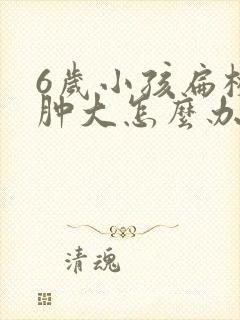 6歲小孩扁桃
肿大怎麼办
清魂